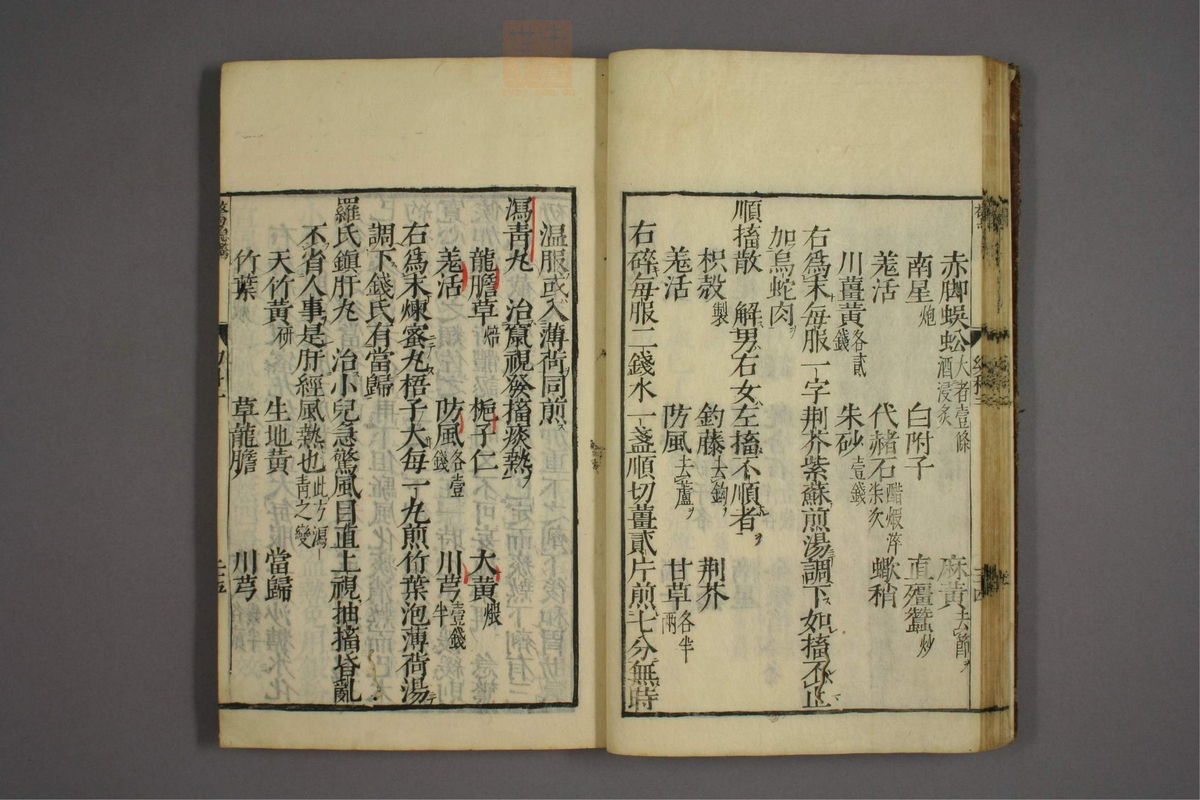 赤脚蜈蚣大者壹條酒浸炙 麻黃去節
南星炮 白附子 直殭蠶炒
羗活 代赭石醋煆淬柒次 蠍稍
川薑黃各貳錢 朱砂壹錢
右爲末每服一字荆芥紫蘇煎湯調下如搐不止
加烏蛇肉
順搐散 解男右女左搐不順者
枳殼製 釣藤去鈎 荆芥
羗活 防風去蘆 甘草各半兩
右碎每服二錢水一盞順切薑貳片煎七分無時
温服或入薄荷同煎
瀉青丸 治竄視發搐痰熱
龍膽草焙 梔子仁 大黃煨
羗活 防風各壹錢 川芎壹錢半
右爲末煉蜜丸梧子大每一丸煎竹葉泡薄荷湯
調下錢氏有當歸
羅氏鎮肝丸 治小兒急驚風目直上視抽搐昏亂
不省人事是肝經風熱也此方瀉青之變
天竹黃研 生地黃 當歸
竹葉 草龍膽 川芎